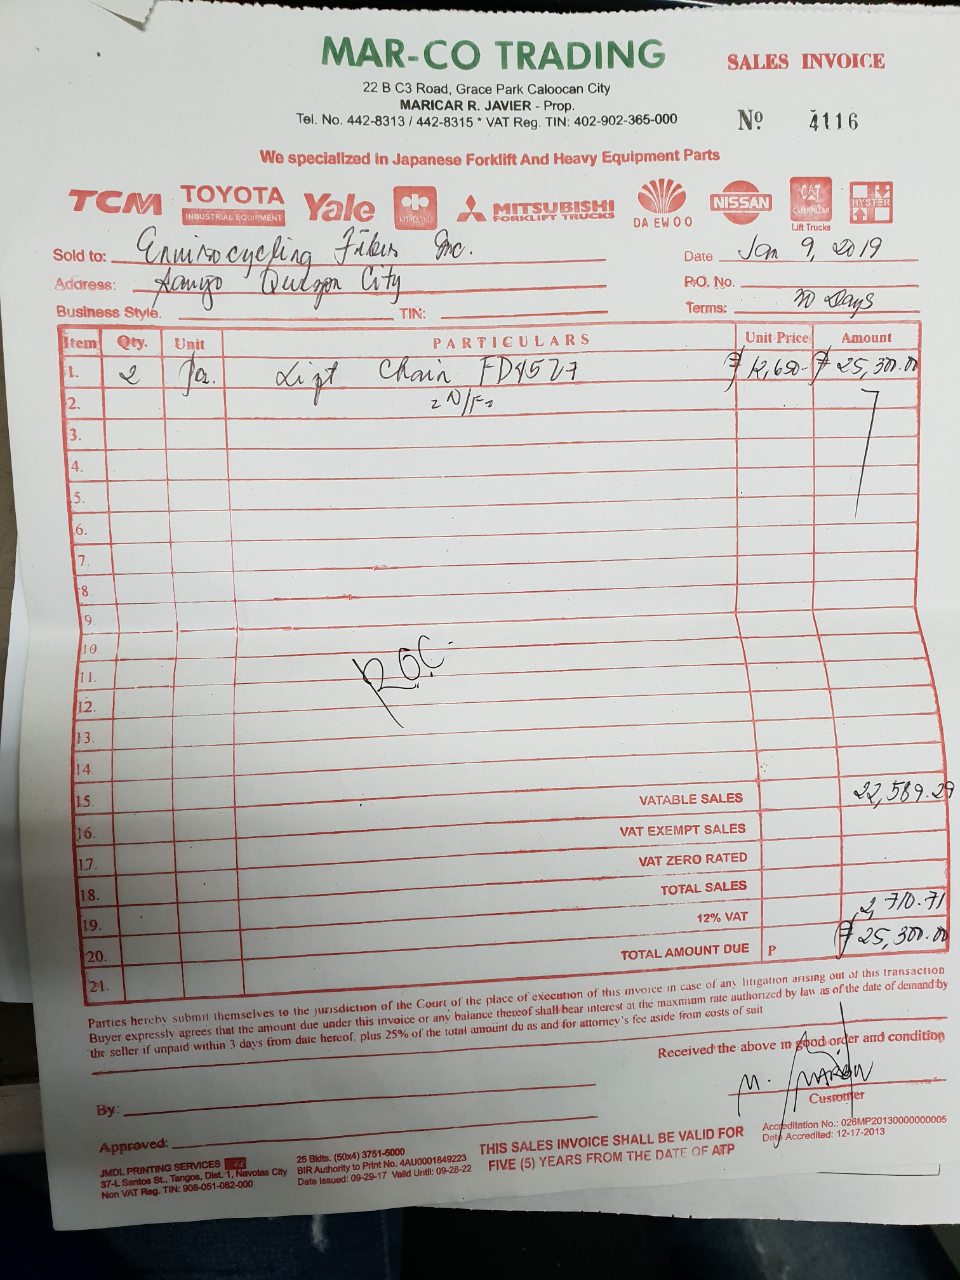 MAR-CO TRADING
SALES INVOICE
22 B C3 Road, Grace Park Caloocan City
MARICAR R. JAVIER - Prop.
Tel. No. 442-8313 / 442-8315 * VAT Reg. TIN: 402-902-365-000
Nº 4116
We specialized in Japanese Forklift And Heavy Equipment Parts
TCM TOYOTA INDUSTRIAL EQUIPMENT Yale KOMATSU MITSUBISHI FORKLIFT TRUCKS DAEWOO NISSAN CAT CATERPILLAR Lift Trucks HYSTER
Sold to: Envirocycling Fiber Inc. Date Jan 9, 2019
Address: Quezon City P.O. No.
Business Style. TIN: Terms: 30 Days
Item Qty. Unit PARTICULARS Unit Price Amount
1. 2 Pcs. Lift Chain FD45Z7 ₱ 12,650- ₱ 25,300.00
2. = N/F =
3.
4.
5.
6.
7.
8.
9.
10.
11.
12.
13.
14.
15. VATABLE SALES 22,589.29
16. VAT EXEMPT SALES
17. VAT ZERO RATED
18. TOTAL SALES
19. 12% VAT 2,710.71
20. TOTAL AMOUNT DUE P ₱ 25,300.00
21.
Parties hereby submit themselves to the jurisdiction of the Court of the place of execution of this invoice in case of any litigation arising out of this transaction
Buyer expressly agrees that the amount due under this invoice or any balance thereof shall bear interest at the maxmium rate authorized by law as of the date of demand by
the seller if unpaid within 3 days from date hereof. plus 25% of the total amount du as and for attorney's fee aside from costs of suit
Received the above in good order and condition
By:
Customer
Approved:
Accreditation No.: 026MP20130000000005
Date Accredited: 12-17-2013
JMDL PRINTING SERVICES
37-L Santos St., Tangos, Dist. 1, Navotas City
Non VAT Reg. TIN: 908-051-082-000
25 Bklts. (50x4) 3751-5000
BIR Authority to Print No. 4AU0001849223
Date Issued: 09-29-17 Valid Until: 09-28-22
THIS SALES INVOICE SHALL BE VALID FOR
FIVE (5) YEARS FROM THE DATE OF ATP